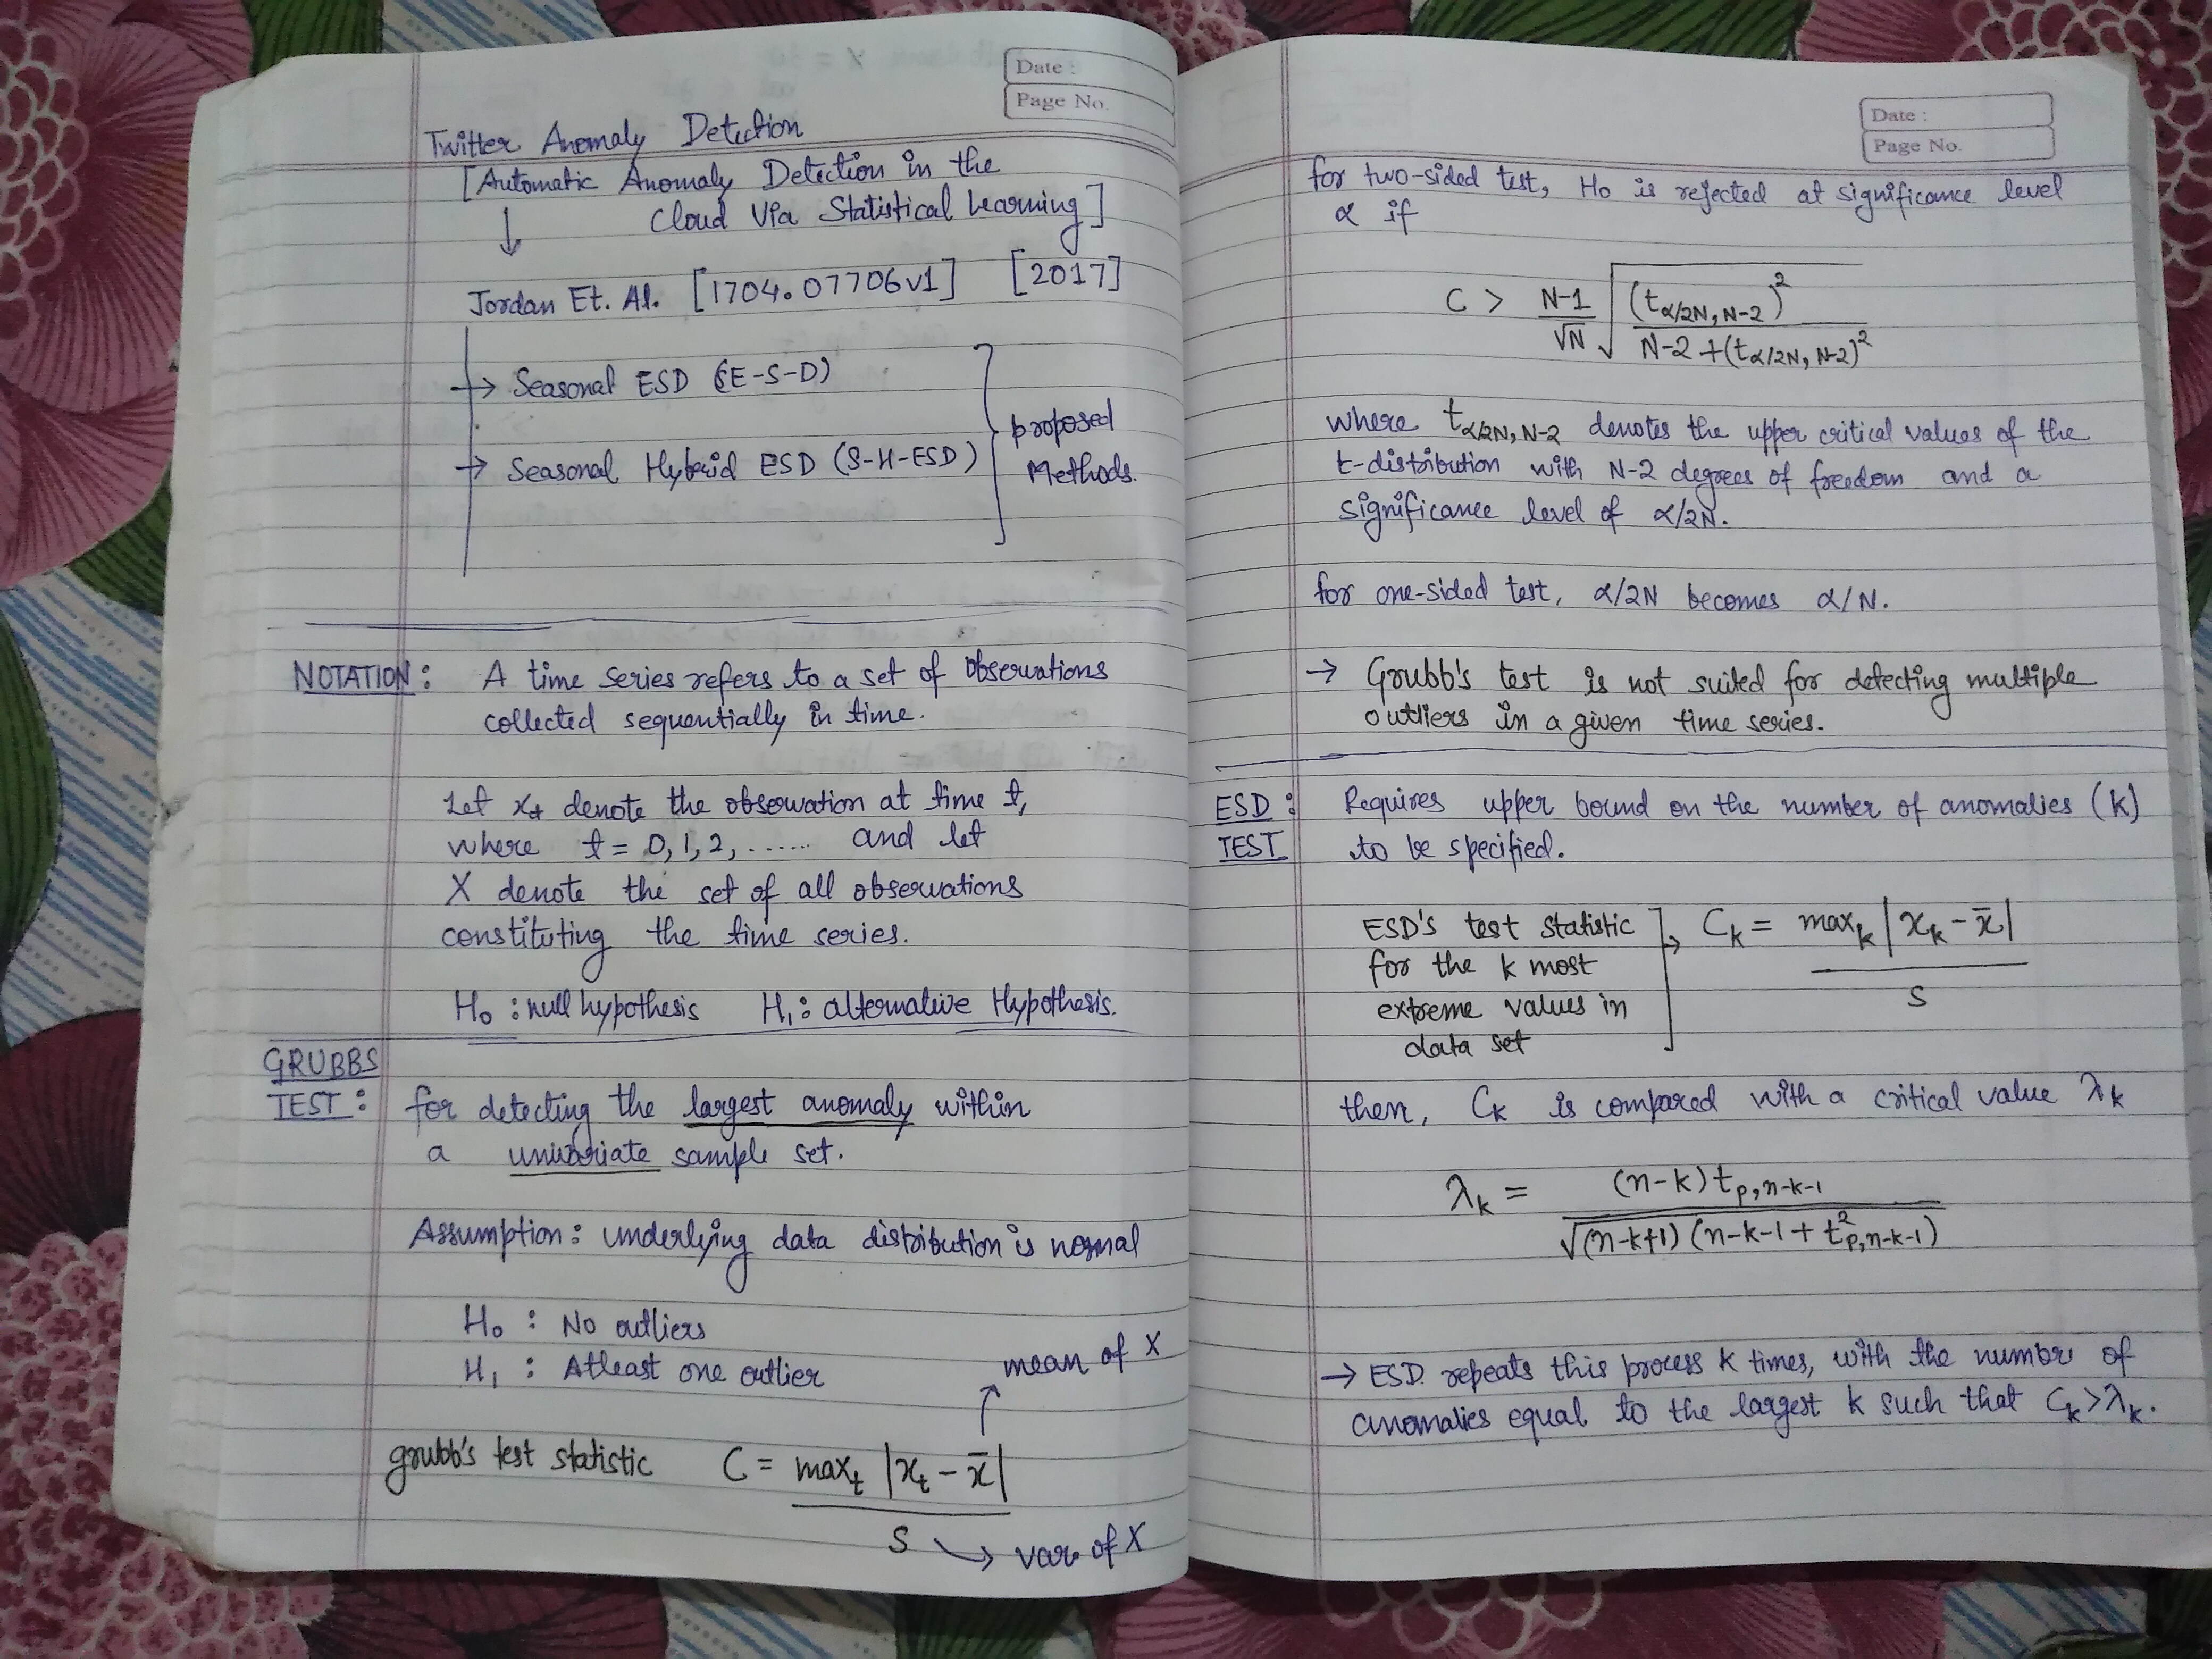 Date :
Page No.
Twitter Anomaly Detection
[Automatic Anomaly Detection in the
Cloud Via Statistical Learning]
↓
Jordan Et. Al. [1704.07706v1] [2017]
→ Seasonal ESD (SE-S-D)
→ Seasonal Hybrid ESD (S-H-ESD)
proposed
Methods.
NOTATION: A time series refers to a set of observations
collected sequentially in time.
Let xt denote the observation at time t,
where t = 0, 1, 2, ...... and let
X denote the set of all observations
constituting the time series.
H₀ : null hypothesis H₁ : alternative Hypothesis.
GRUBBS
TEST : for detecting the largest anomaly within
a univariate sample set.
Assumption : underlying data distribution is normal
H₀ : No outliers
H₁ : Atleast one outlier
mean of X
grubb's test statistic C = maxt |xt - x̄|
S → var of X
Date :
Page No.
for two-sided test, H₀ is rejected at significance level
α if
C > N-1/√N √((tα/2N, N-2)²/N-2+(tα/2N, N-2)²)
where tα/2N, N-2 denotes the upper critical values of the
t-distribution with N-2 degrees of freedom and a
significance level of α/2N.
for one-sided test, α/2N becomes α/N.
→ Grubb's test is not suited for detecting multiple
outliers in a given time series.
ESD : Requires upper bound on the number of anomalies (k)
TEST to be specified.
ESD's test statistic
for the k most
extreme values in
data set
Ck = maxk |xk - x̄|
S
then, Ck is compared with a critical value λk
λk = (n-k) tp,n-k-1
√(n-k+1) (n-k-1 + t²p,n-k-1)
→ ESD repeats this process k times, with the number of
anomalies equal to the largest k such that Ck > λk.